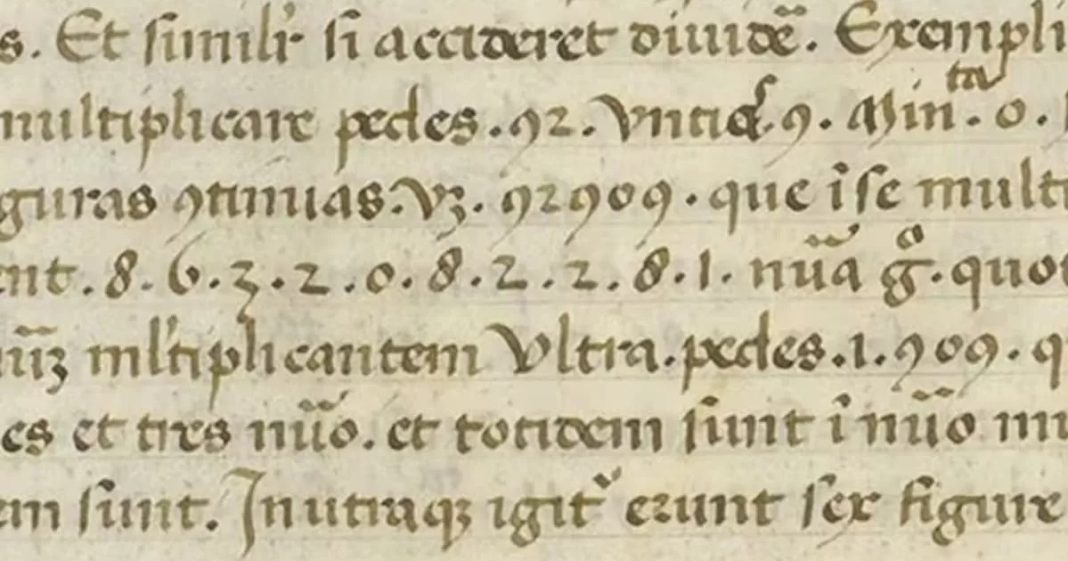 s. Et similr̃ si accideret diuidẽ. Exempli
multiplicare pedes. 92. Vntias. 9. Minᵗᵃ. 0.
guras 9tinuas. Vꝫ. 92909. que ĩ se multi
ent. 8. 6. 3. 2. 0. 8. 2. 2. 8. 1. nũa g̊. quot
ũꝫ ml̃tiplicantem Vltra. pedes. 1. 909. q
es et tres nũo. et totidem sunt ĩ nũo mu
em sunt. In utraqꝫ igit᷑ erunt sex figure